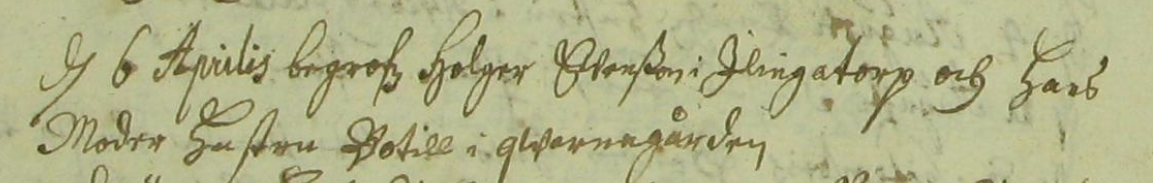 D 6 Aprilis begrofz Holger Svensson i Ilingatorp och Hans
Moder Hustru Botill i qvarnagården